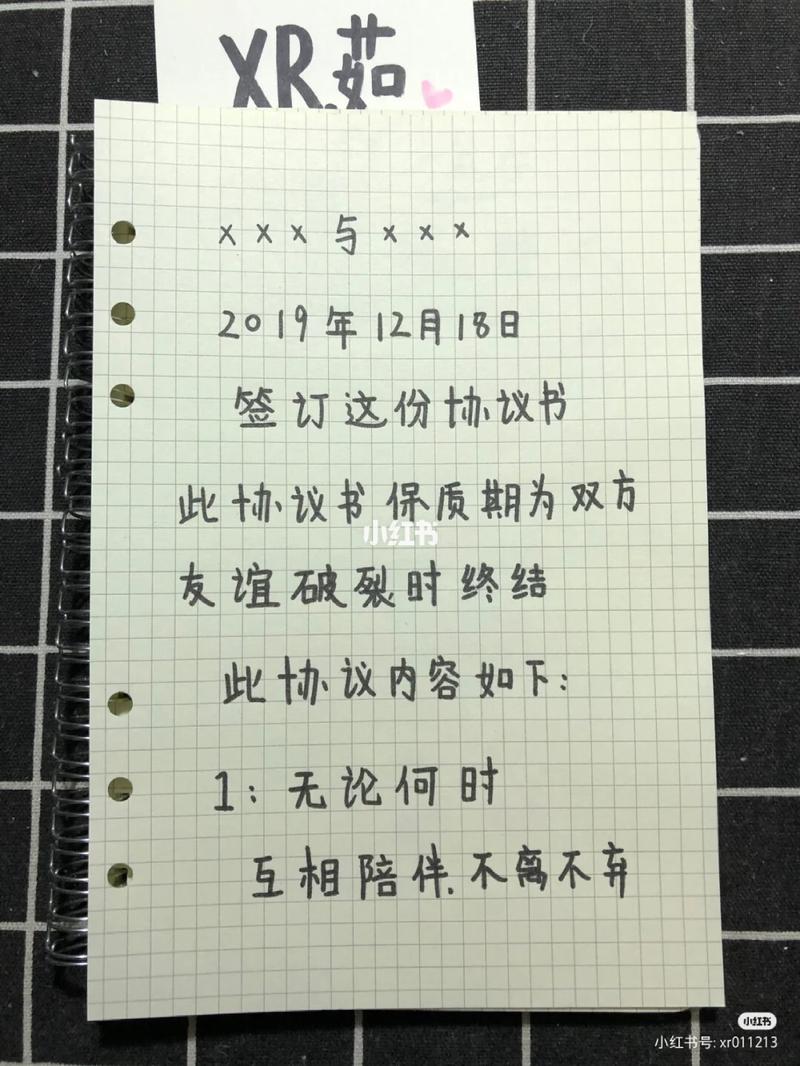 XR.茹
××× 与 ×××
2019年12月18日
签订这份协议书
此协议书保质期为双方
小红书
友谊破裂时终结
此协议内容如下：
1：无论何时
互相陪伴、不离不弃
小红书
小红书号: xr011213